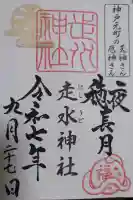 神戸元町の天神さん
厄神さん
夜長月
一夜
走水神社
はしうど
令和七年
九月二十七日
走水
神社
福